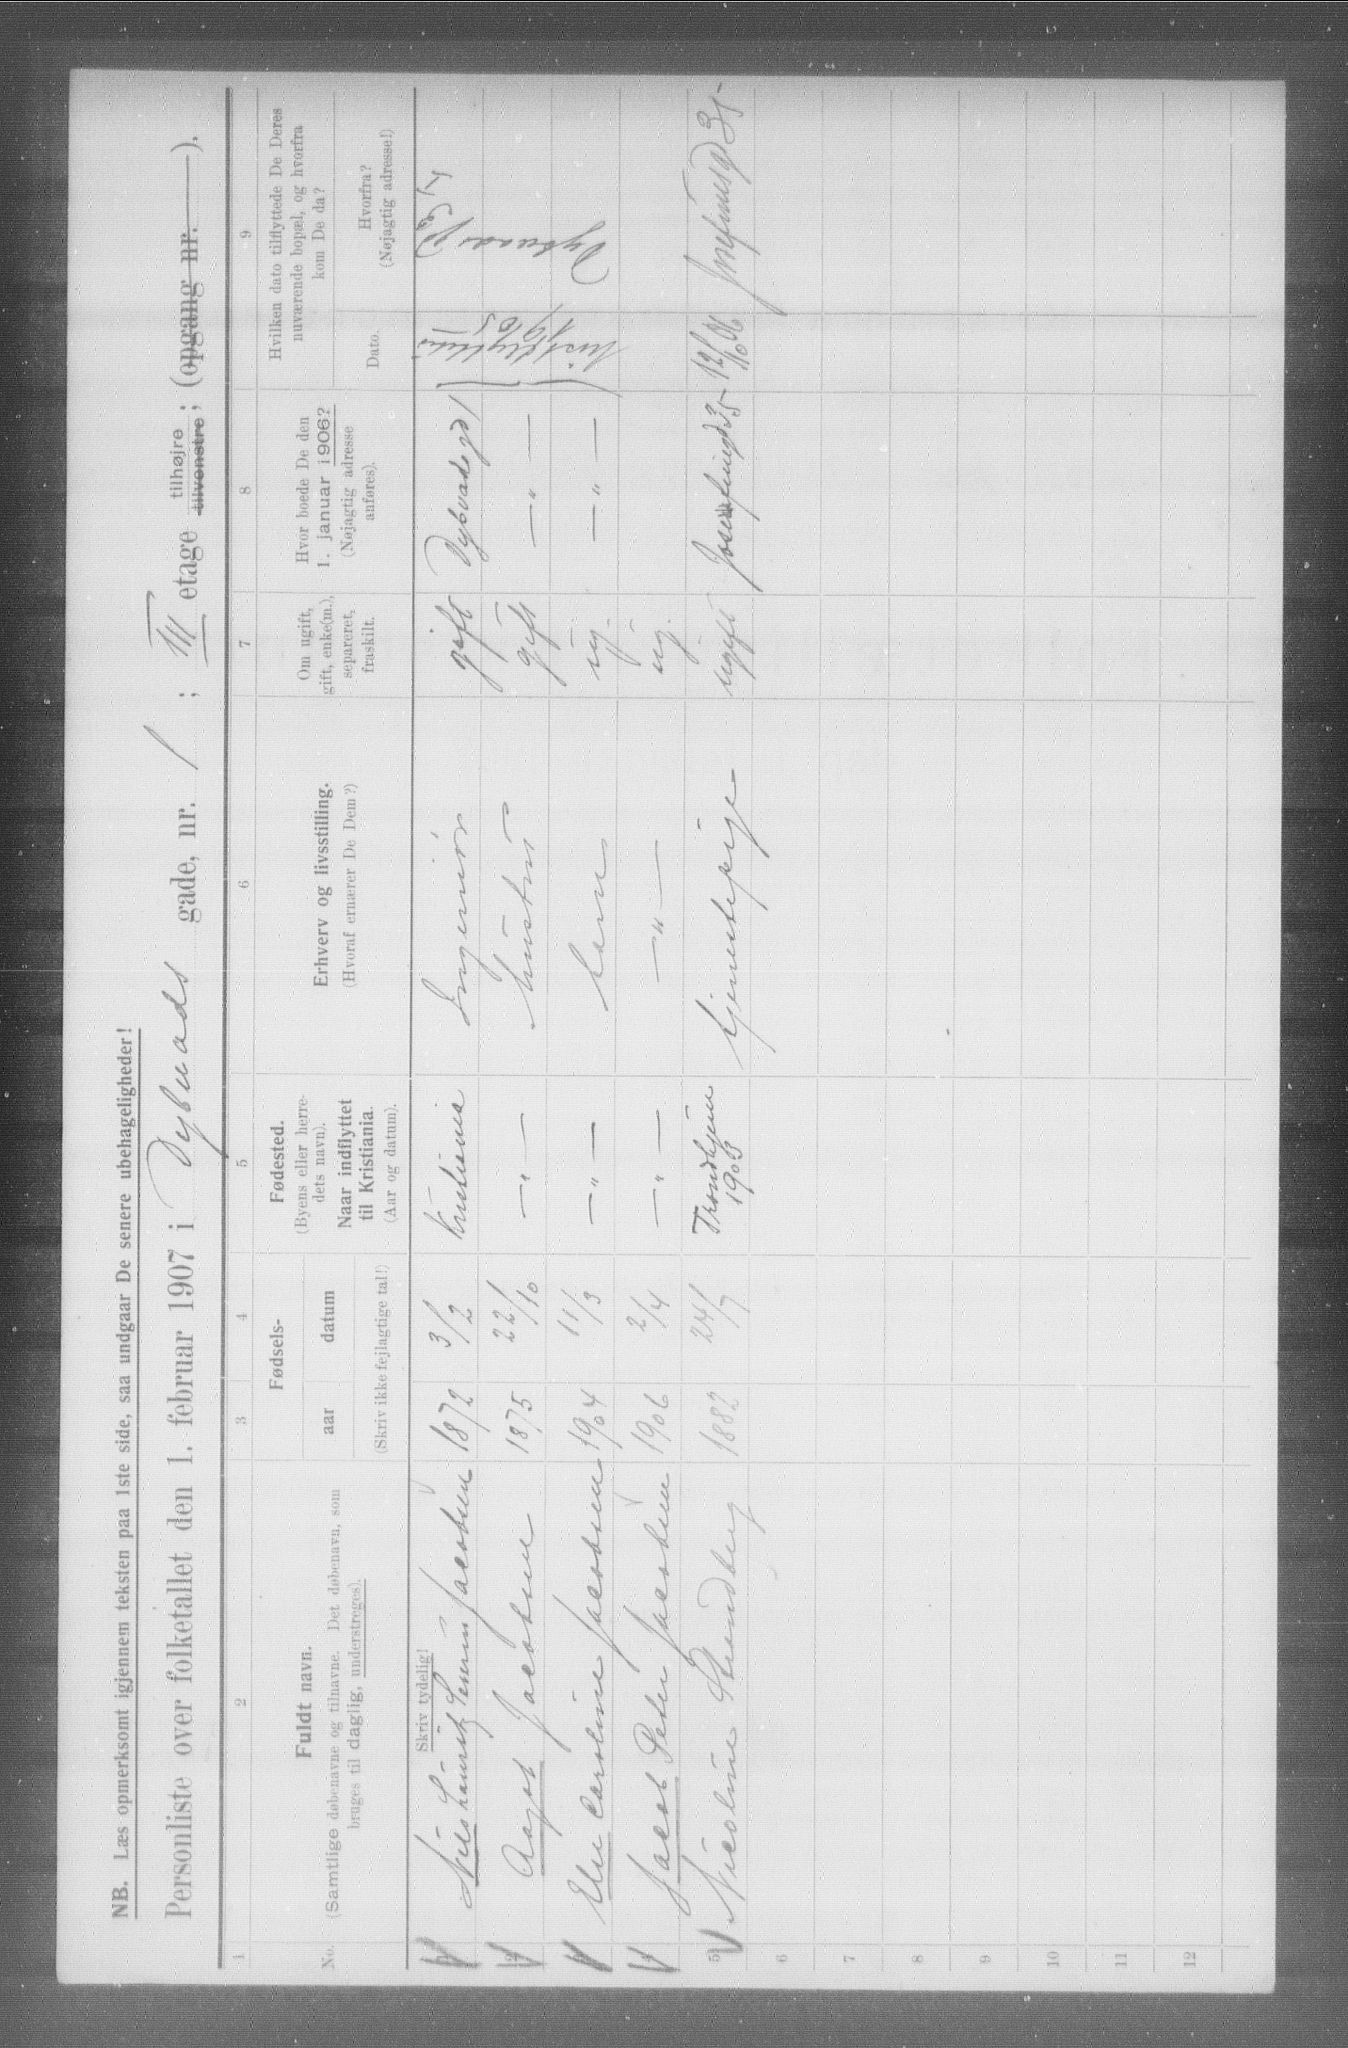 NB. Læs opmerksomt igjennem teksten paa 1ste side, saa undgaar De senere ubehageligheder!
Personliste over folketallet den 1. februar 1907 i Dybvads gade, nr. 1 ; III etage tilhøjre tilvenstre; (opgang nr. ).
1 2 3 4 5 6 7 8 9
No.
Fuldt navn.
(Samtlige døbenavne og tilnavne. Det døbenavn, som
bruges til daglig, understreges).
Fødsels-
aar datum
(Skriv ikke fejlagtige tal!)
Fødested.
(Byens eller herre-
dets navn).
Naar indflyttet
til Kristiania.
(Aar og datum).
Erhverv og livsstilling.
(Hvoraf ernærer De Dem?)
Om ugift,
gift, enke(m.),
separeret,
fraskilt.
Hvor boede De den
1. januar 1906?
(Nøjagtig adresse
anføres).
Hvilken dato tilflyttede De Deres
nuværende bopæl, og hvorfra
kom De da?
Dato.
Hvorfra?
(Nøjagtig adresse!)
Skriv tydelig!
Nils Lauritz Jacobsen 1872 3/2 Kristiania Ingeniør gift Dybvadsgd 1
2 Aagot Jacobsen 1875 22/10 — " — hustru gift — " —
Else Caroline Jacobsen 1904 11/3 — " — barn ug. — " —
Jacob Peter Jacobsen 1906 2/4 — " — — " — ug.
5 Nicoline Strandberg 1882 24/7 Trondhjem 1903 tjenestepige ugift Josefinesgd 35 12/10 06 Josefinesgd 35
1905
6
7
8
9
10
11
12